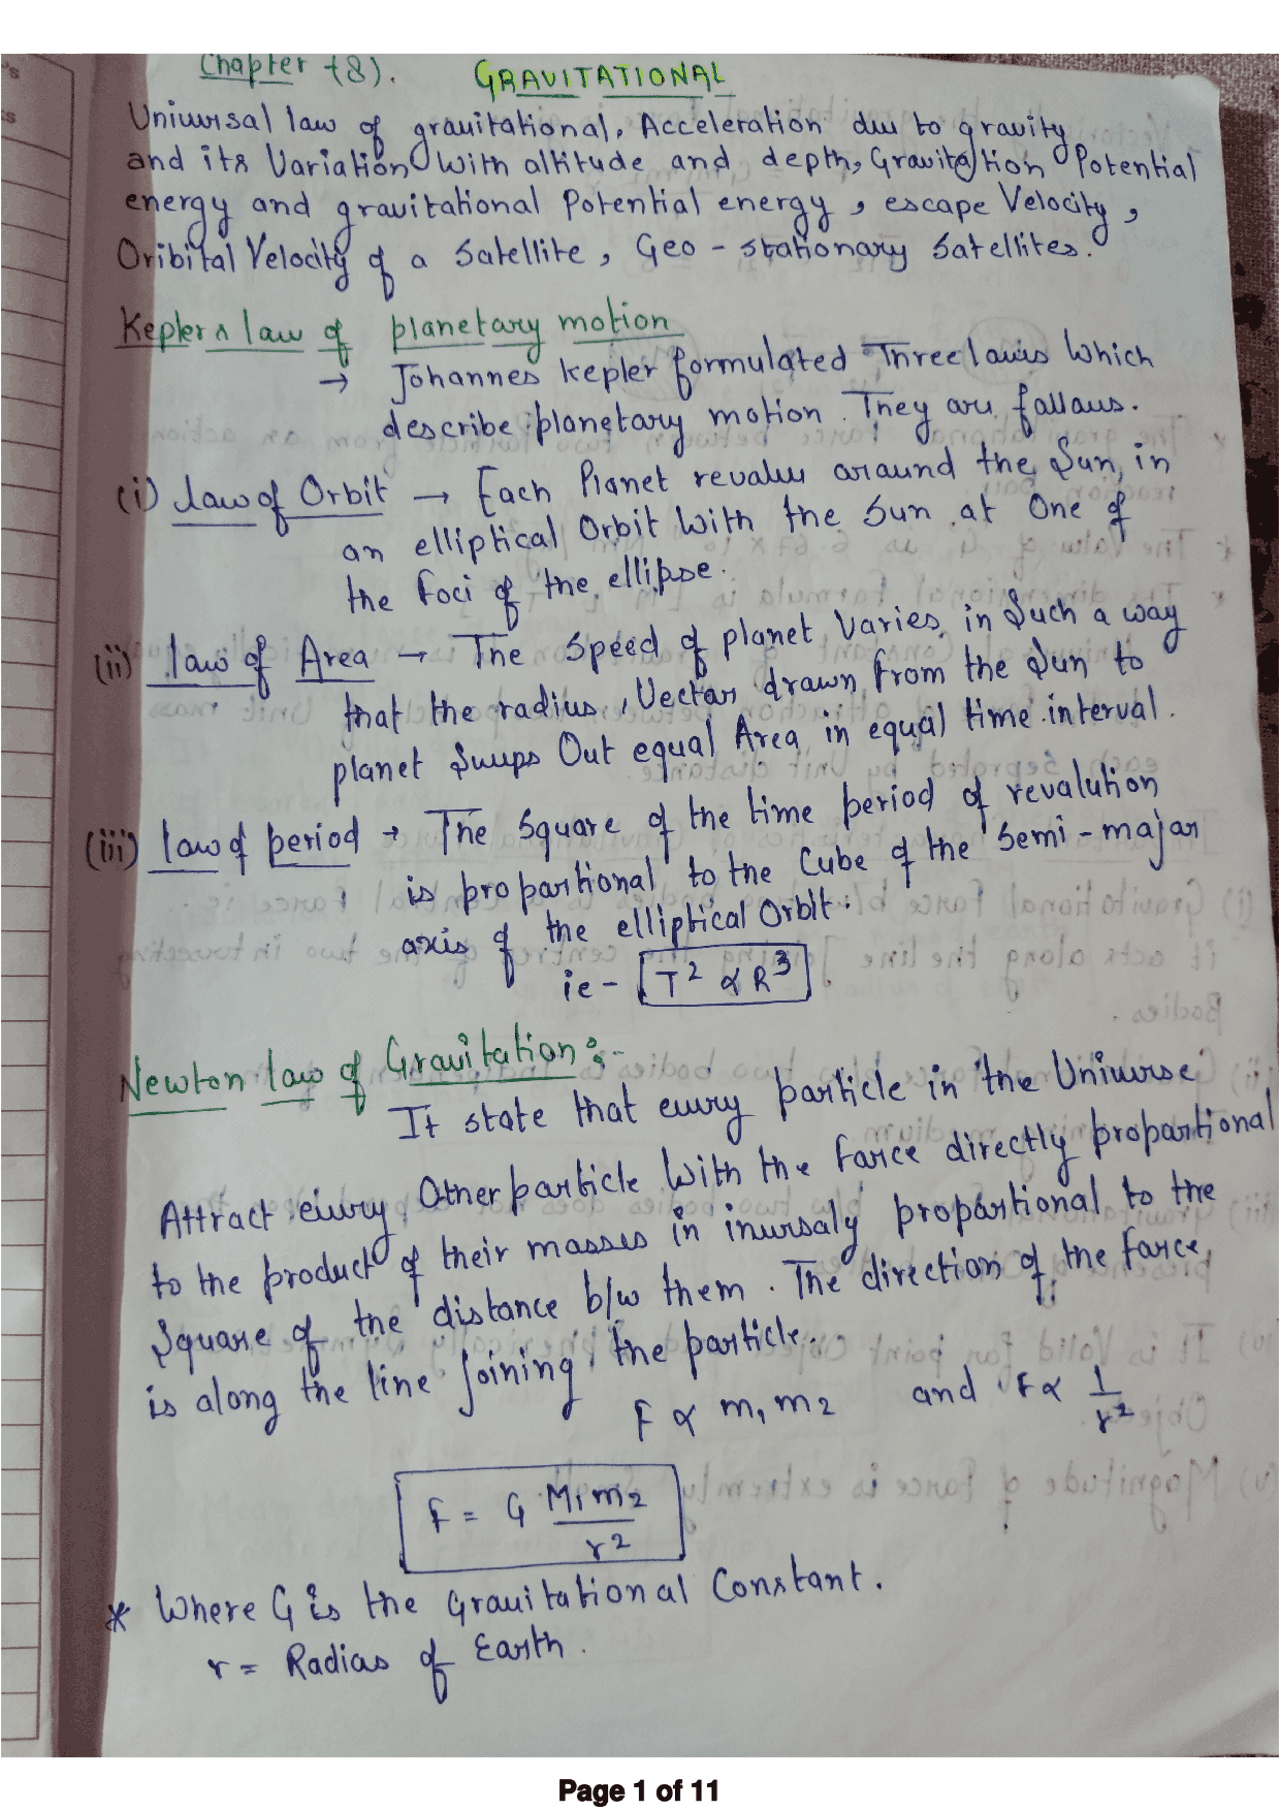 Chapter (8). GRAVITATIONAL
Universal law of gravitational, Acceleration due to gravity
and its Variation With altitude and depth, Gravitation Potential
energy and gravitational Potential energy, escape Velocity,
Oribital Velocity of a Satellite, Geo - stationary Satellites.
Kepler's law of planetary motion
→ Johannes Kepler formulated Three laws Which
describe planetary motion. They are fallaws.
(i) law of Orbit → Each Planet revalve araund the Sun, in
an elliptical Orbit With the Sun at One of
the foci of the ellipse.
(ii) law of Area → The Speed of planet Varies in Such a way
that the radius Vectar drawn from the Sun to
planet Sweeps Out equal Area in equal time interval.
(iii) law of period → The Square of the time period of revalution
is prapartional to the Cube of the Semi - majar
axis of the elliptical Orbit.
ie - T² ∝ R³
Newton law of Gravitation :-
It state that every particle in the Universe
Attract every Other particle With the farce directly prapartional
to the product of their masses in inversaly prapartional to the
Square of the distance b/w them. The direction of the farce
is along the line joining the particle.
F ∝ m₁ m₂ and F ∝ 1/r²
F = G M₁m₂/r²
* Where G is the Gravitational Constant.
r = Radias of Earth.
Page 1 of 11